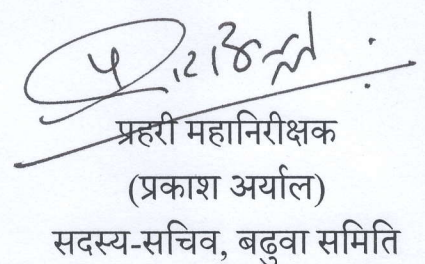 प्रहरी महानिरीक्षक
(प्रकाश अर्याल)
सदस्य-सचिव, बढुवा समिति